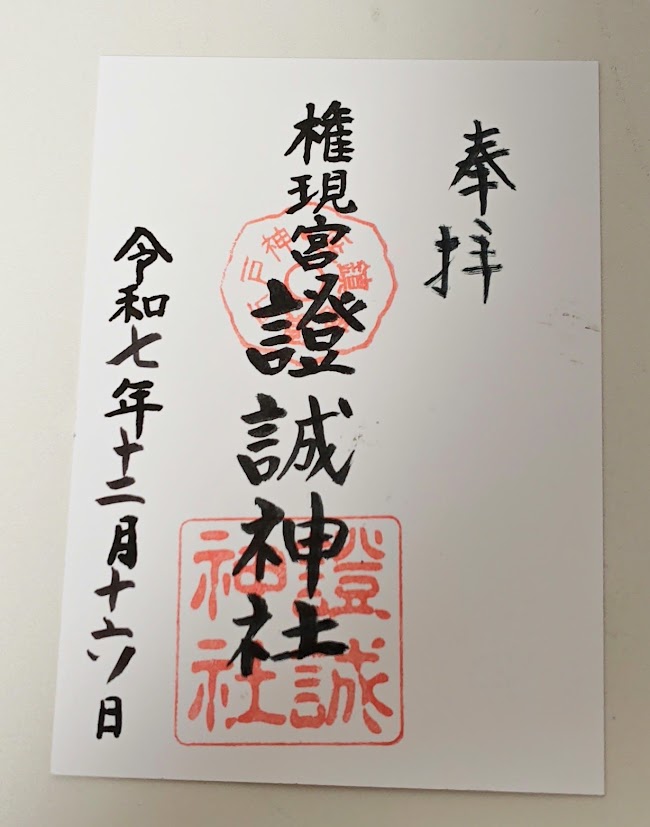 奉拝
権現宮
證誠神社
令和七年十二月十六日
證誠
神社